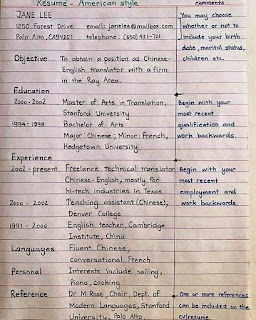 Résumé - American style
comments
JANE LEE
1250 Forest Drive email: janelee@mailbox.com
Palo Alto, CA94201 telephone: (650) 421-721
You may choose
whether or not to
include your birth
date, marital status,
children etc.
Objective To obtain a position as Chinese-
English translator with a firm
in the Bay Area.
Education
2000-2002 Master of Arts in Translation,
Stanford University
1994-1998 Bachelor of Arts
Major: Chinese; Minor: French,
Hedgetown University
Begin with your
most recent
qualification and
work backwards.
Experience
2002-present Freelance technical translator
Chinese-English, mostly for
hi-tech industries in Texas
2000-2002 Teaching assistant (Chinese),
Denver College
1997-2000 English teacher, Cambridge
Institute, China
Begin with your
most recent
employment and
work backwards.
Languages Fluent Chinese,
conversational French
Personal Interests include sailing,
Piano, cooking
Reference Dr M Rose, Chair, Dept. of
Modern Languages, Stanford
University, Palo Alto,
One or more references
can be included on the
cv/resume.